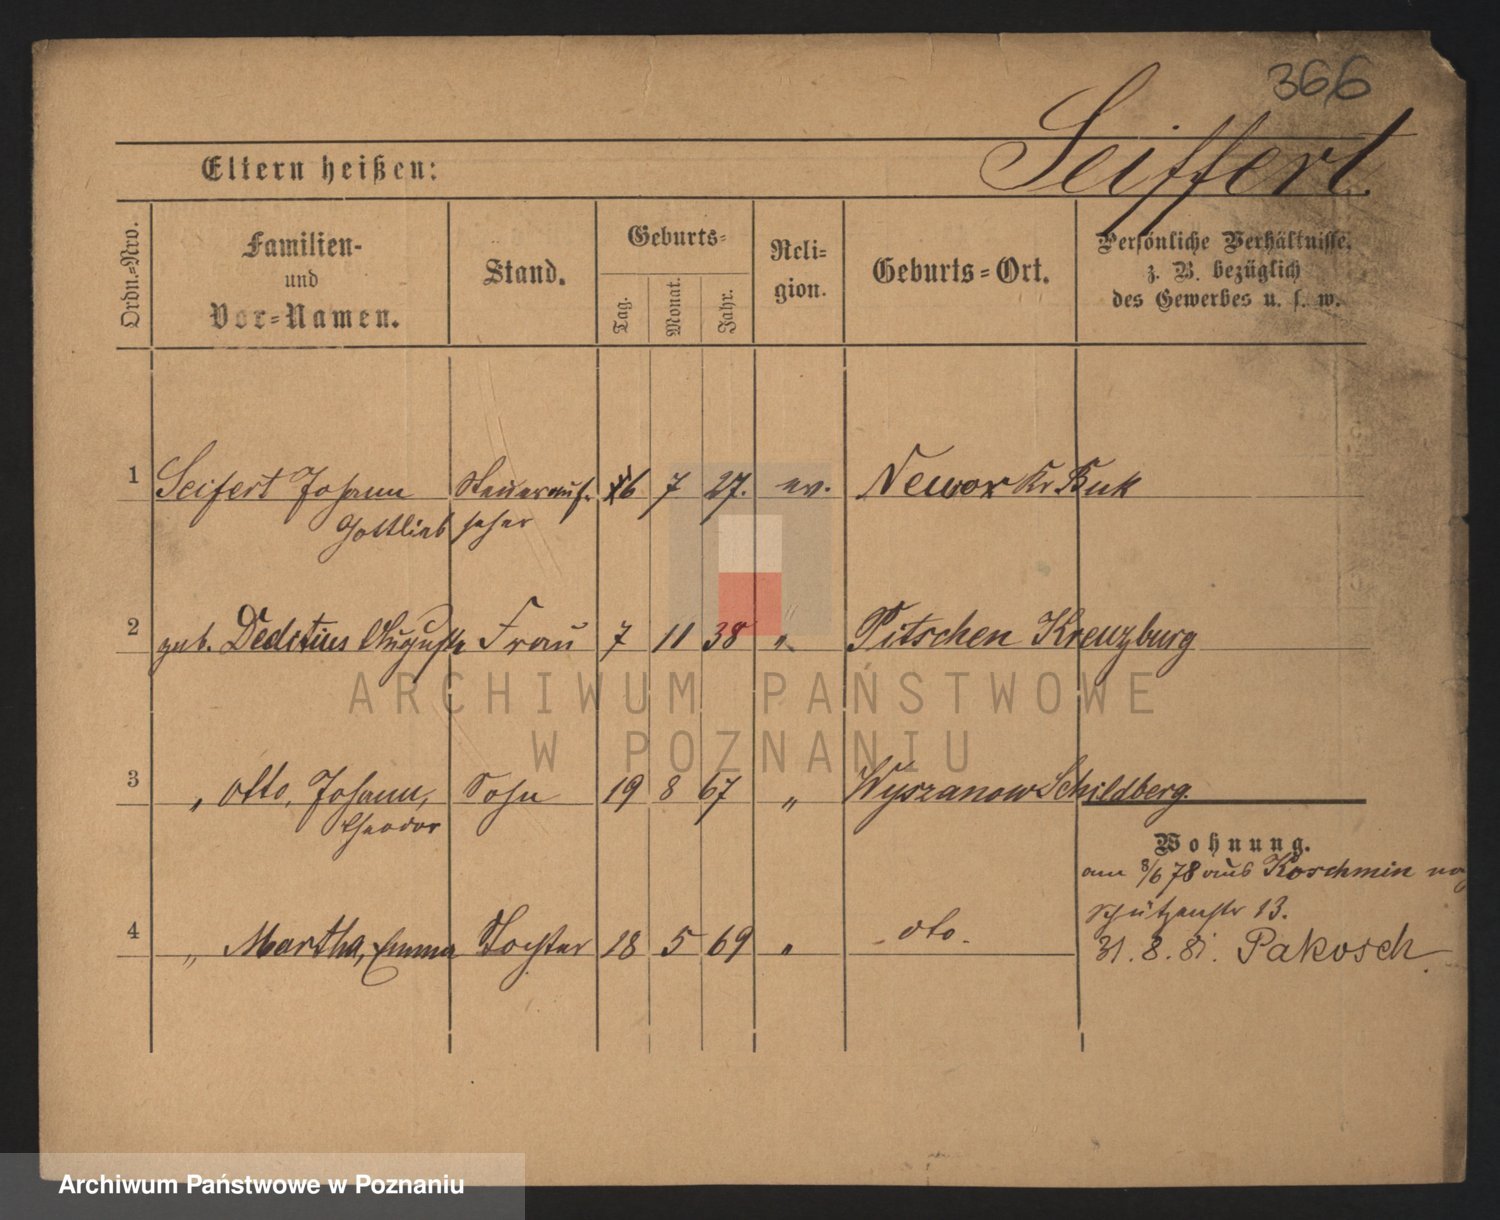 366
Seiffert
Eltern heißen:
Ordn.=Nro.
Familien-
und
Vor=Namen.
Stand.
Geburts=
Tag.
Monat.
Jahr.
Reli=
gion.
Geburts=Ort.
Persönliche Verhältnisse.
z. B. bezüglich
des Gewerbes u. s. w.
1 Seifert Johann Steuerauf- 6 7 27. ev. Kr Buk
Gottlieb seher
2 geb. Deditius Auguste Frau 7 11 38 " Pitschen Kreuzburg
3 " Otto, Johann, Sohn 19 8 67 " Wyszanow Schildberg.
Theodor
Wohnung.
am 8/6 78 aus Koschmin
Schützenstr 13.
4 " Martha, Emma Tochter 18 5 69 " - dto -
31. 8. 81. Pakosch
ARCHIWUM PAŃSTWOWE
W POZNANIU
Archiwum Państwowe w Poznaniu